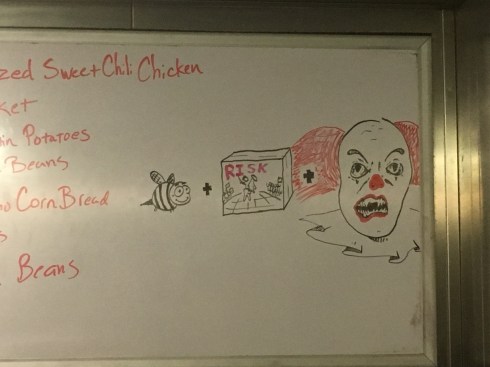 Sweet Chili Chicken
Potatoes
Beans
Corn Bread
Beans
RISK